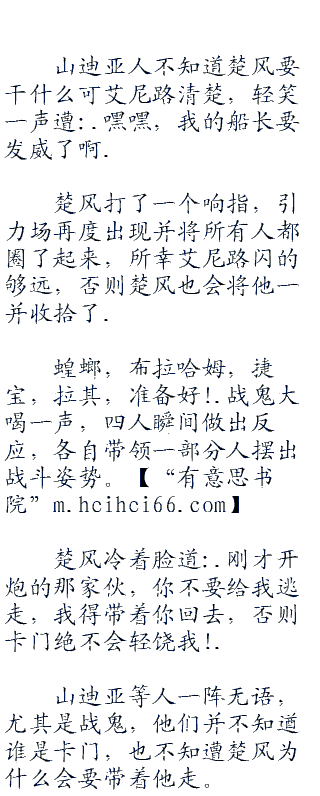 山迪亚人不知道楚风要
干什么可艾尼路清楚，轻笑
一声遭:.嘿嘿，我的船长要
发威了啊.
楚风打了一个响指，引
力场再度出现并将所有人都
圈了起来，所幸艾尼路闪的
够远，否则楚风也会将他一
并收拾了.
蝗螂，布拉哈姆，捷
宝，拉其，准备好!.战鬼大
喝一声，四人瞬间做出反
应，各自带领一部分人摆出
战斗姿势。【“有意思书
院”m.hcihci66.com】
楚风冷着脸道:.刚才开
炮的那家伙，你不要给我逃
走，我得带着你回去，否则
卡门绝不会轻饶我!.
山迪亚等人一阵无语，
尤其是战鬼，他们并不知道
谁是卡门，也不知遭楚风为
什么会要带着他走。